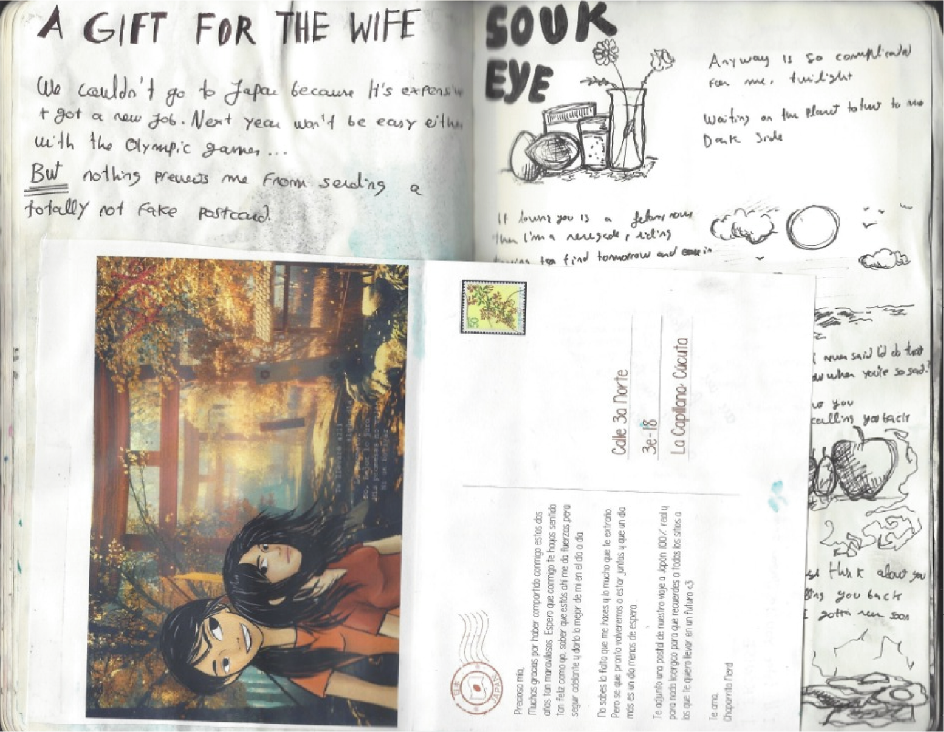 A GIFT FOR THE WIFE
We couldn't go to Japan because It's expensive
+ got a new job. Next year won't be easy either
with the Olympic games...
But nothing prevents me from sending a
totally not fake postcard.
SOUK
EYE
Anyway is so complicated
for me, twilight
Waiting on the planet to turn to the
Dark Side
If loving you is a felony now
then I'm a renegade, riding
to find tomorrow and
Calle 3a Norte
3e-18
La Capillana- Cúcuta
Preciosa mia,
Muchas gracias por haber compartido conmigo estos dos
años tan maravillosos. Espero que conmigo te hayas sentido
tan feliz como yo, saber que estás ahi me da fuerzas para
seguir adelante y darlo lo mejor de mi en el dia a dia
No sabes la falta que me haces y lo mucho que te extraño.
Pero se que pronto volveremos a estar juntas y que un dia
más es un dia menos de espera
Te adjunto una postal de nuestro viaje a Japón 100% real y
para nada
para que recuerdes a todos los sitios a
los que te quiero llevar en un futuro <3
Te ama,
Nerd
never said I'd do that
when you're so sad?
you
calling you back
think about you
you back
gotta run soon